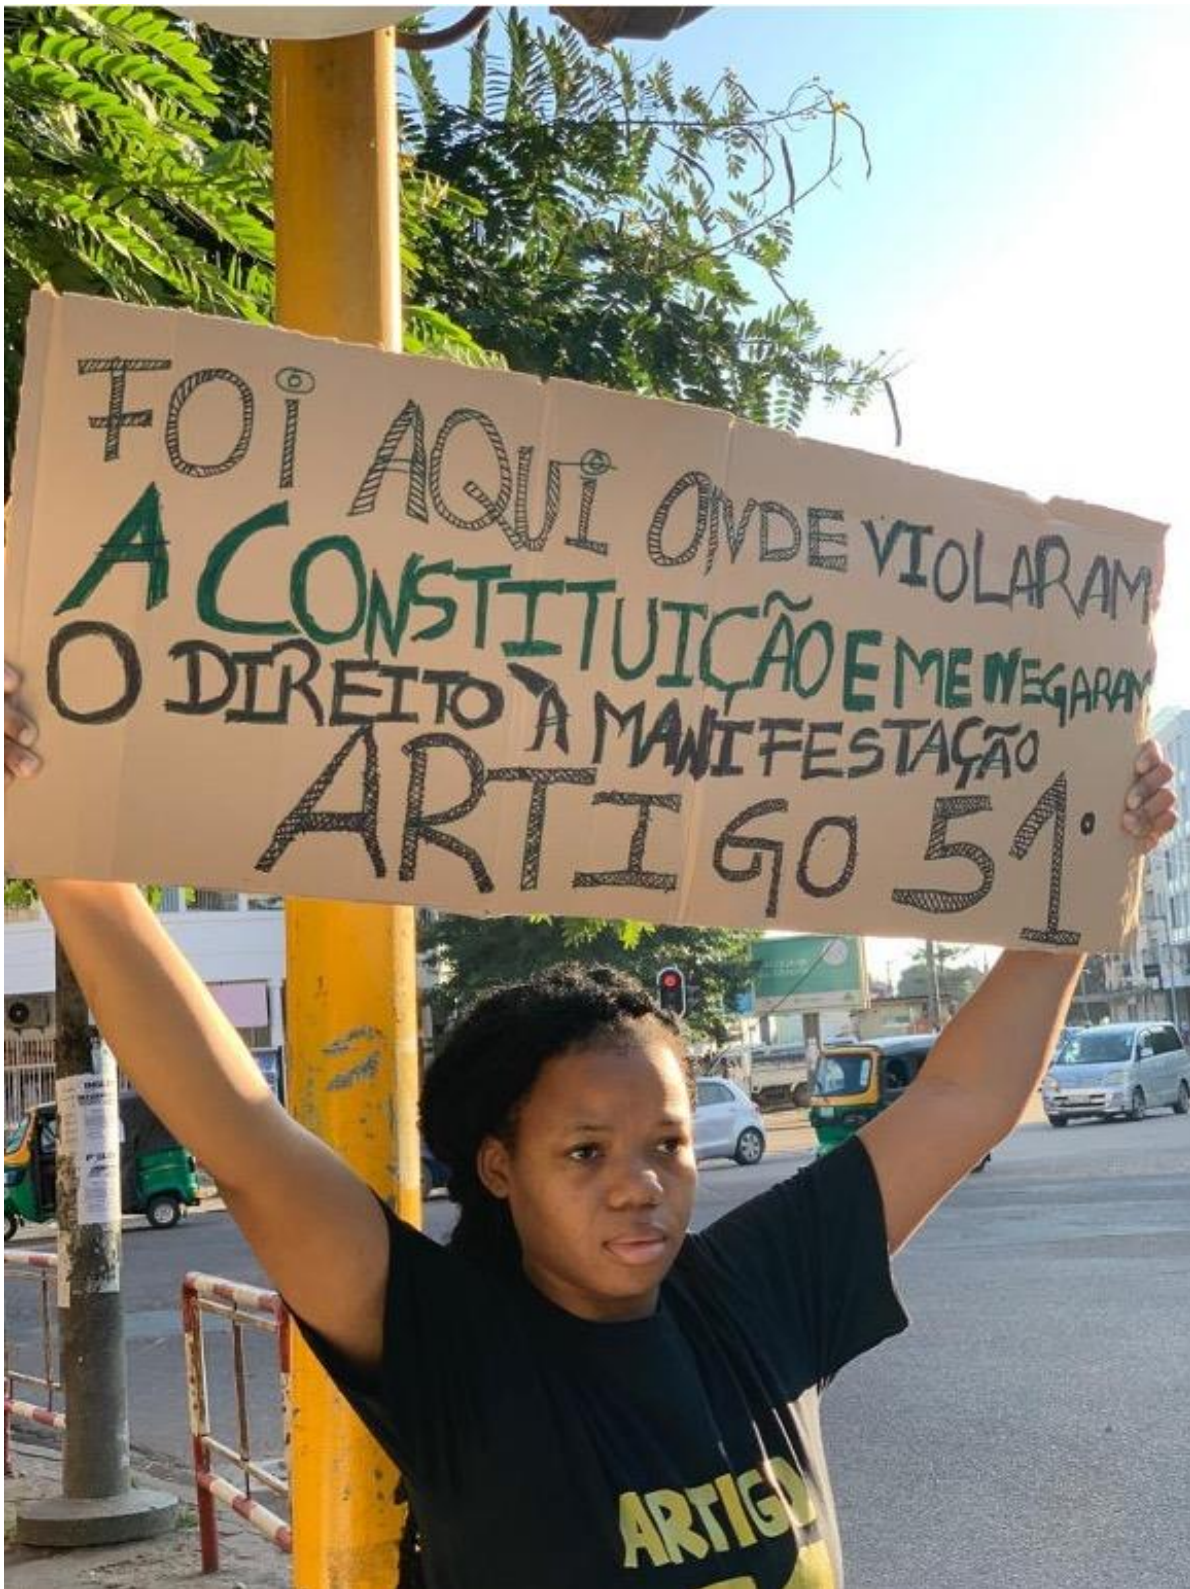 FOI AQUI ONDE VIOLARAM
A CONSTITUIÇÃO E ME NEGARAM
O DIREITO À MANIFESTAÇÃO
ARTIGO 51º
ARTIGO